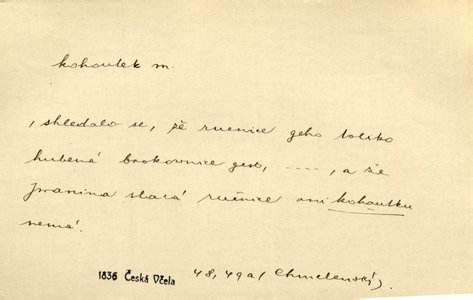 kohoutek m.
, shledalo se, že ručnice geho toliko
hubená brokownice gest, ----, a že
Jwanina stará ručnice ani kohoutku
nemá.
1836 Česká Včela 48,49a (Chmelenský).